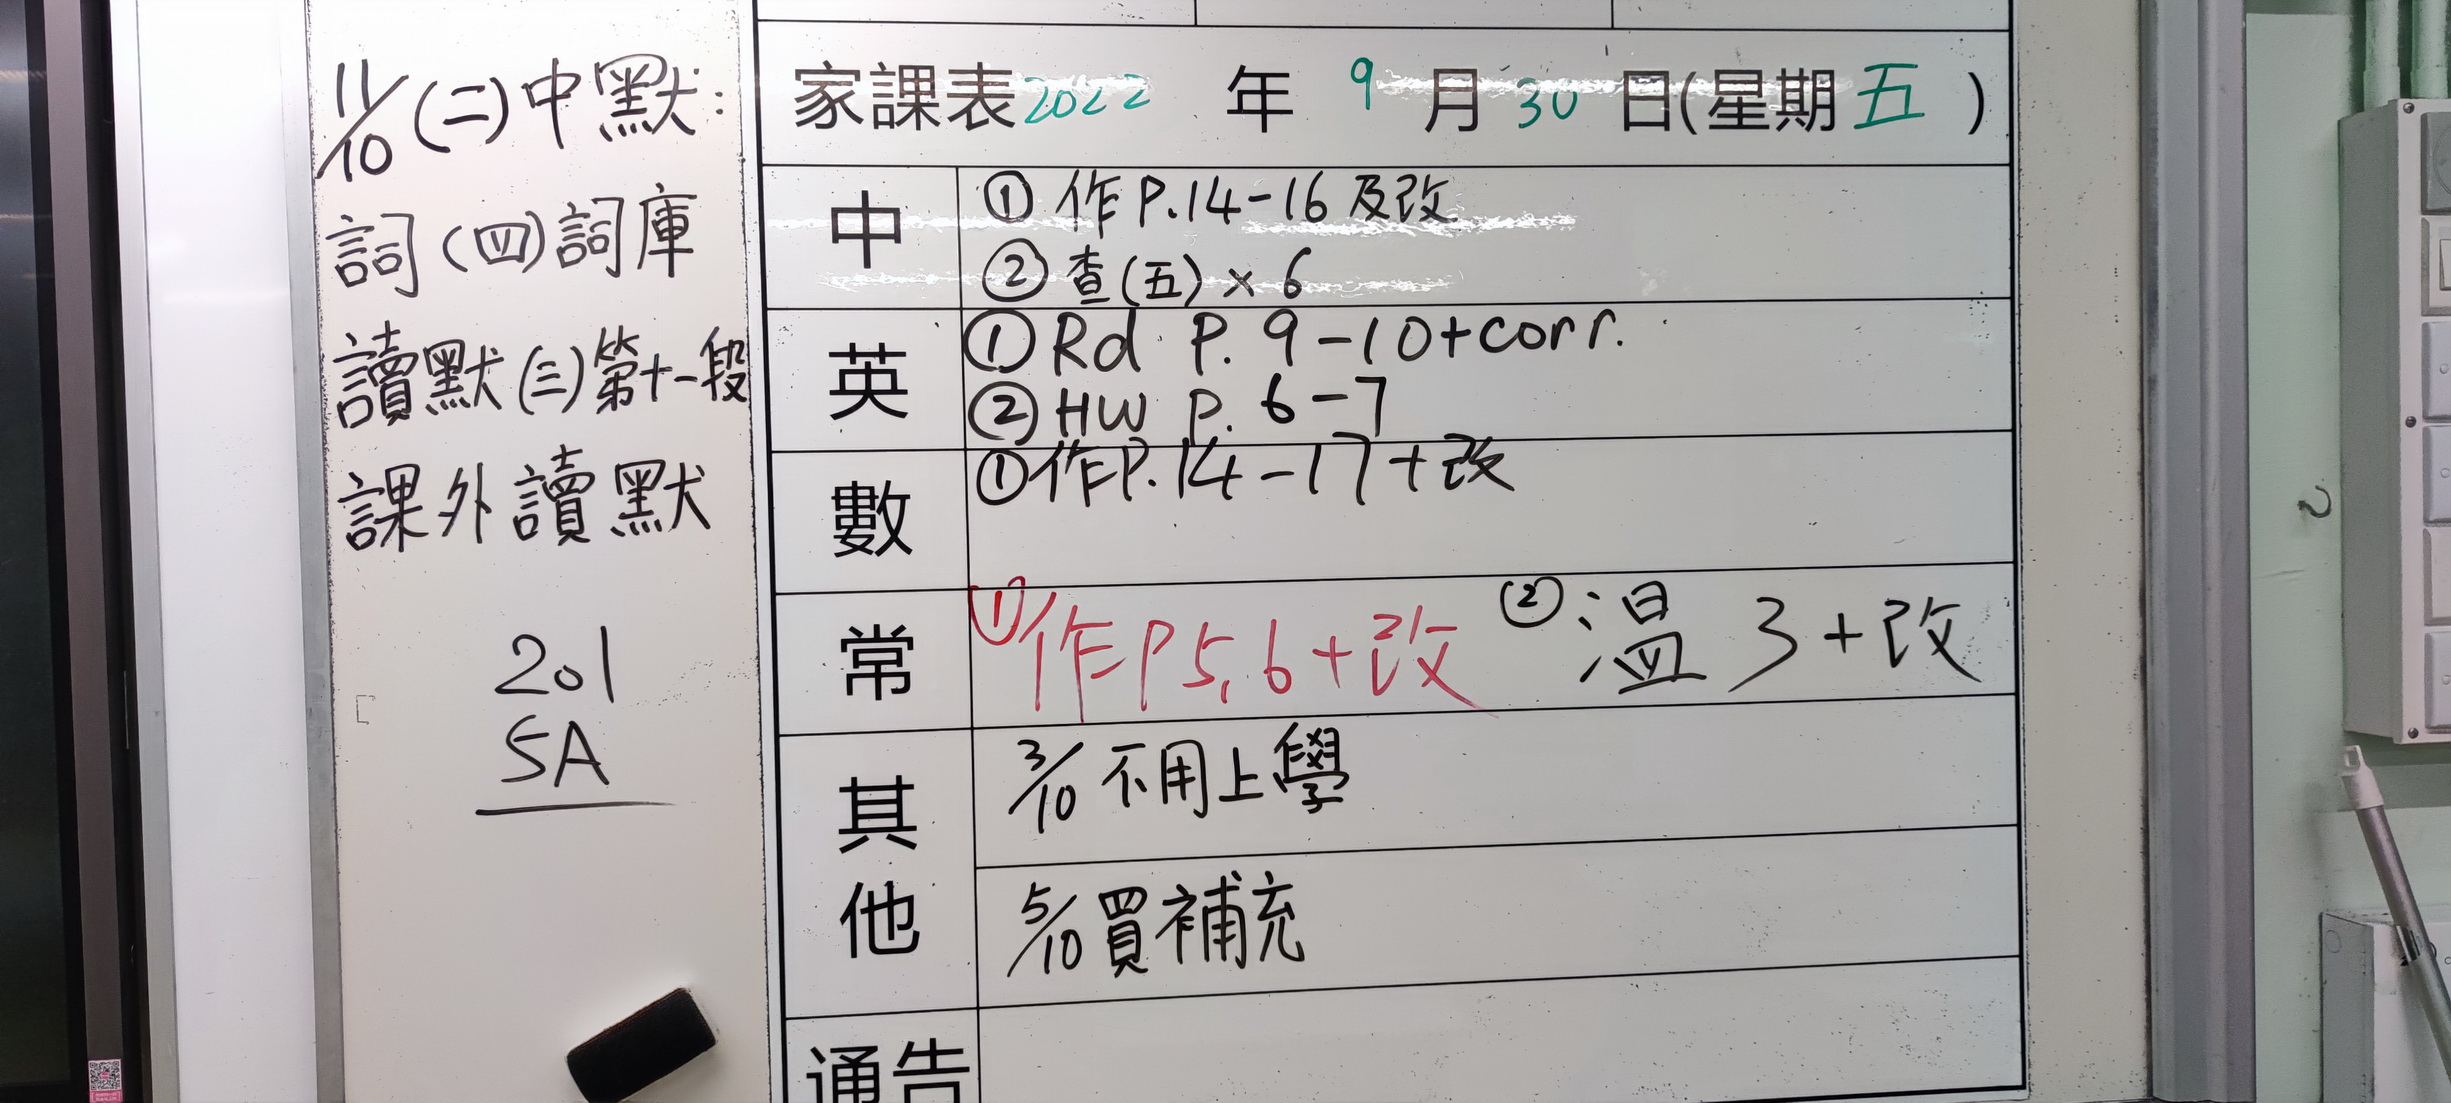 11/10 (二) 中默:
詞 (四) 詞庫
讀默 (三) 第十一段
課外讀默
201
5A
家課表 2022 年 9 月 30 日(星期 五 )
中
① 作 P.14-16 及改
② 查 (五) × 6
英
① Rd P. 9-10+corr.
② HW P. 6-7
數
① 作P.14-17+改
常
① 作P5,6+改 ② 溫 3+改
其他
3/10 不用上學
5/10 買補充
通告